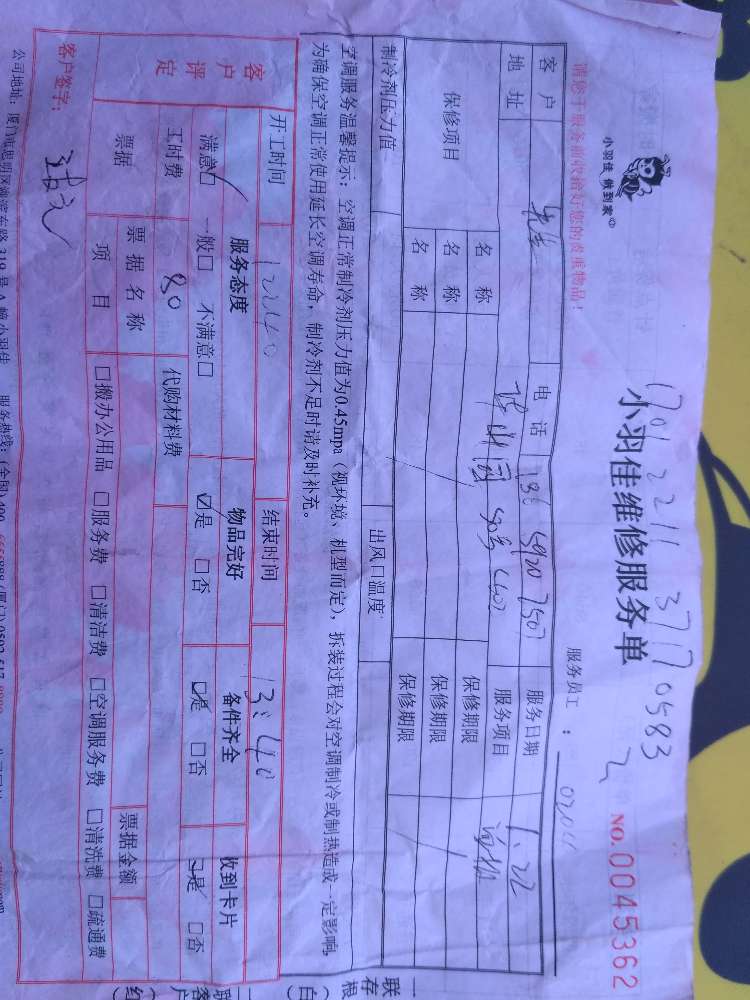 小羽佳 做到家
1701 2211 3717 0583
小羽佳维修服务单
NO.0045362
请您于服务前收拾好您的贵重物品!
服务员工:
客户 电话 服务日期 1.22
地址 服务项目
保修项目 名称 保修期限
名称 保修期限
名称 保修期限
制冷剂压力值 出风口温度
空调服务温馨提示:空调正常制冷剂压力值为0.45mpa(视环境、机型而定),拆装过程会对空调制冷或制热造成一定影响
为确保空调正常使用延长空调寿命,制冷剂不足时请及时补充。
开工时间 12:40 结束时间 13:40
客户评定 服务态度 物品完好 备件齐全 收到卡片
满意☑ 一般□ 不满意□ ☑是 □否 ☑是 □否 ☑是 □否
工时费 80 代购材料费
票据 票据名称 票据金额
项目 □搬办公用品 □服务费 □清洁费 □空调服务费 □清洗费 □疏通费
客户签字:
公司地址:厦门市思明区
一联存根(白)
二联客户(红)